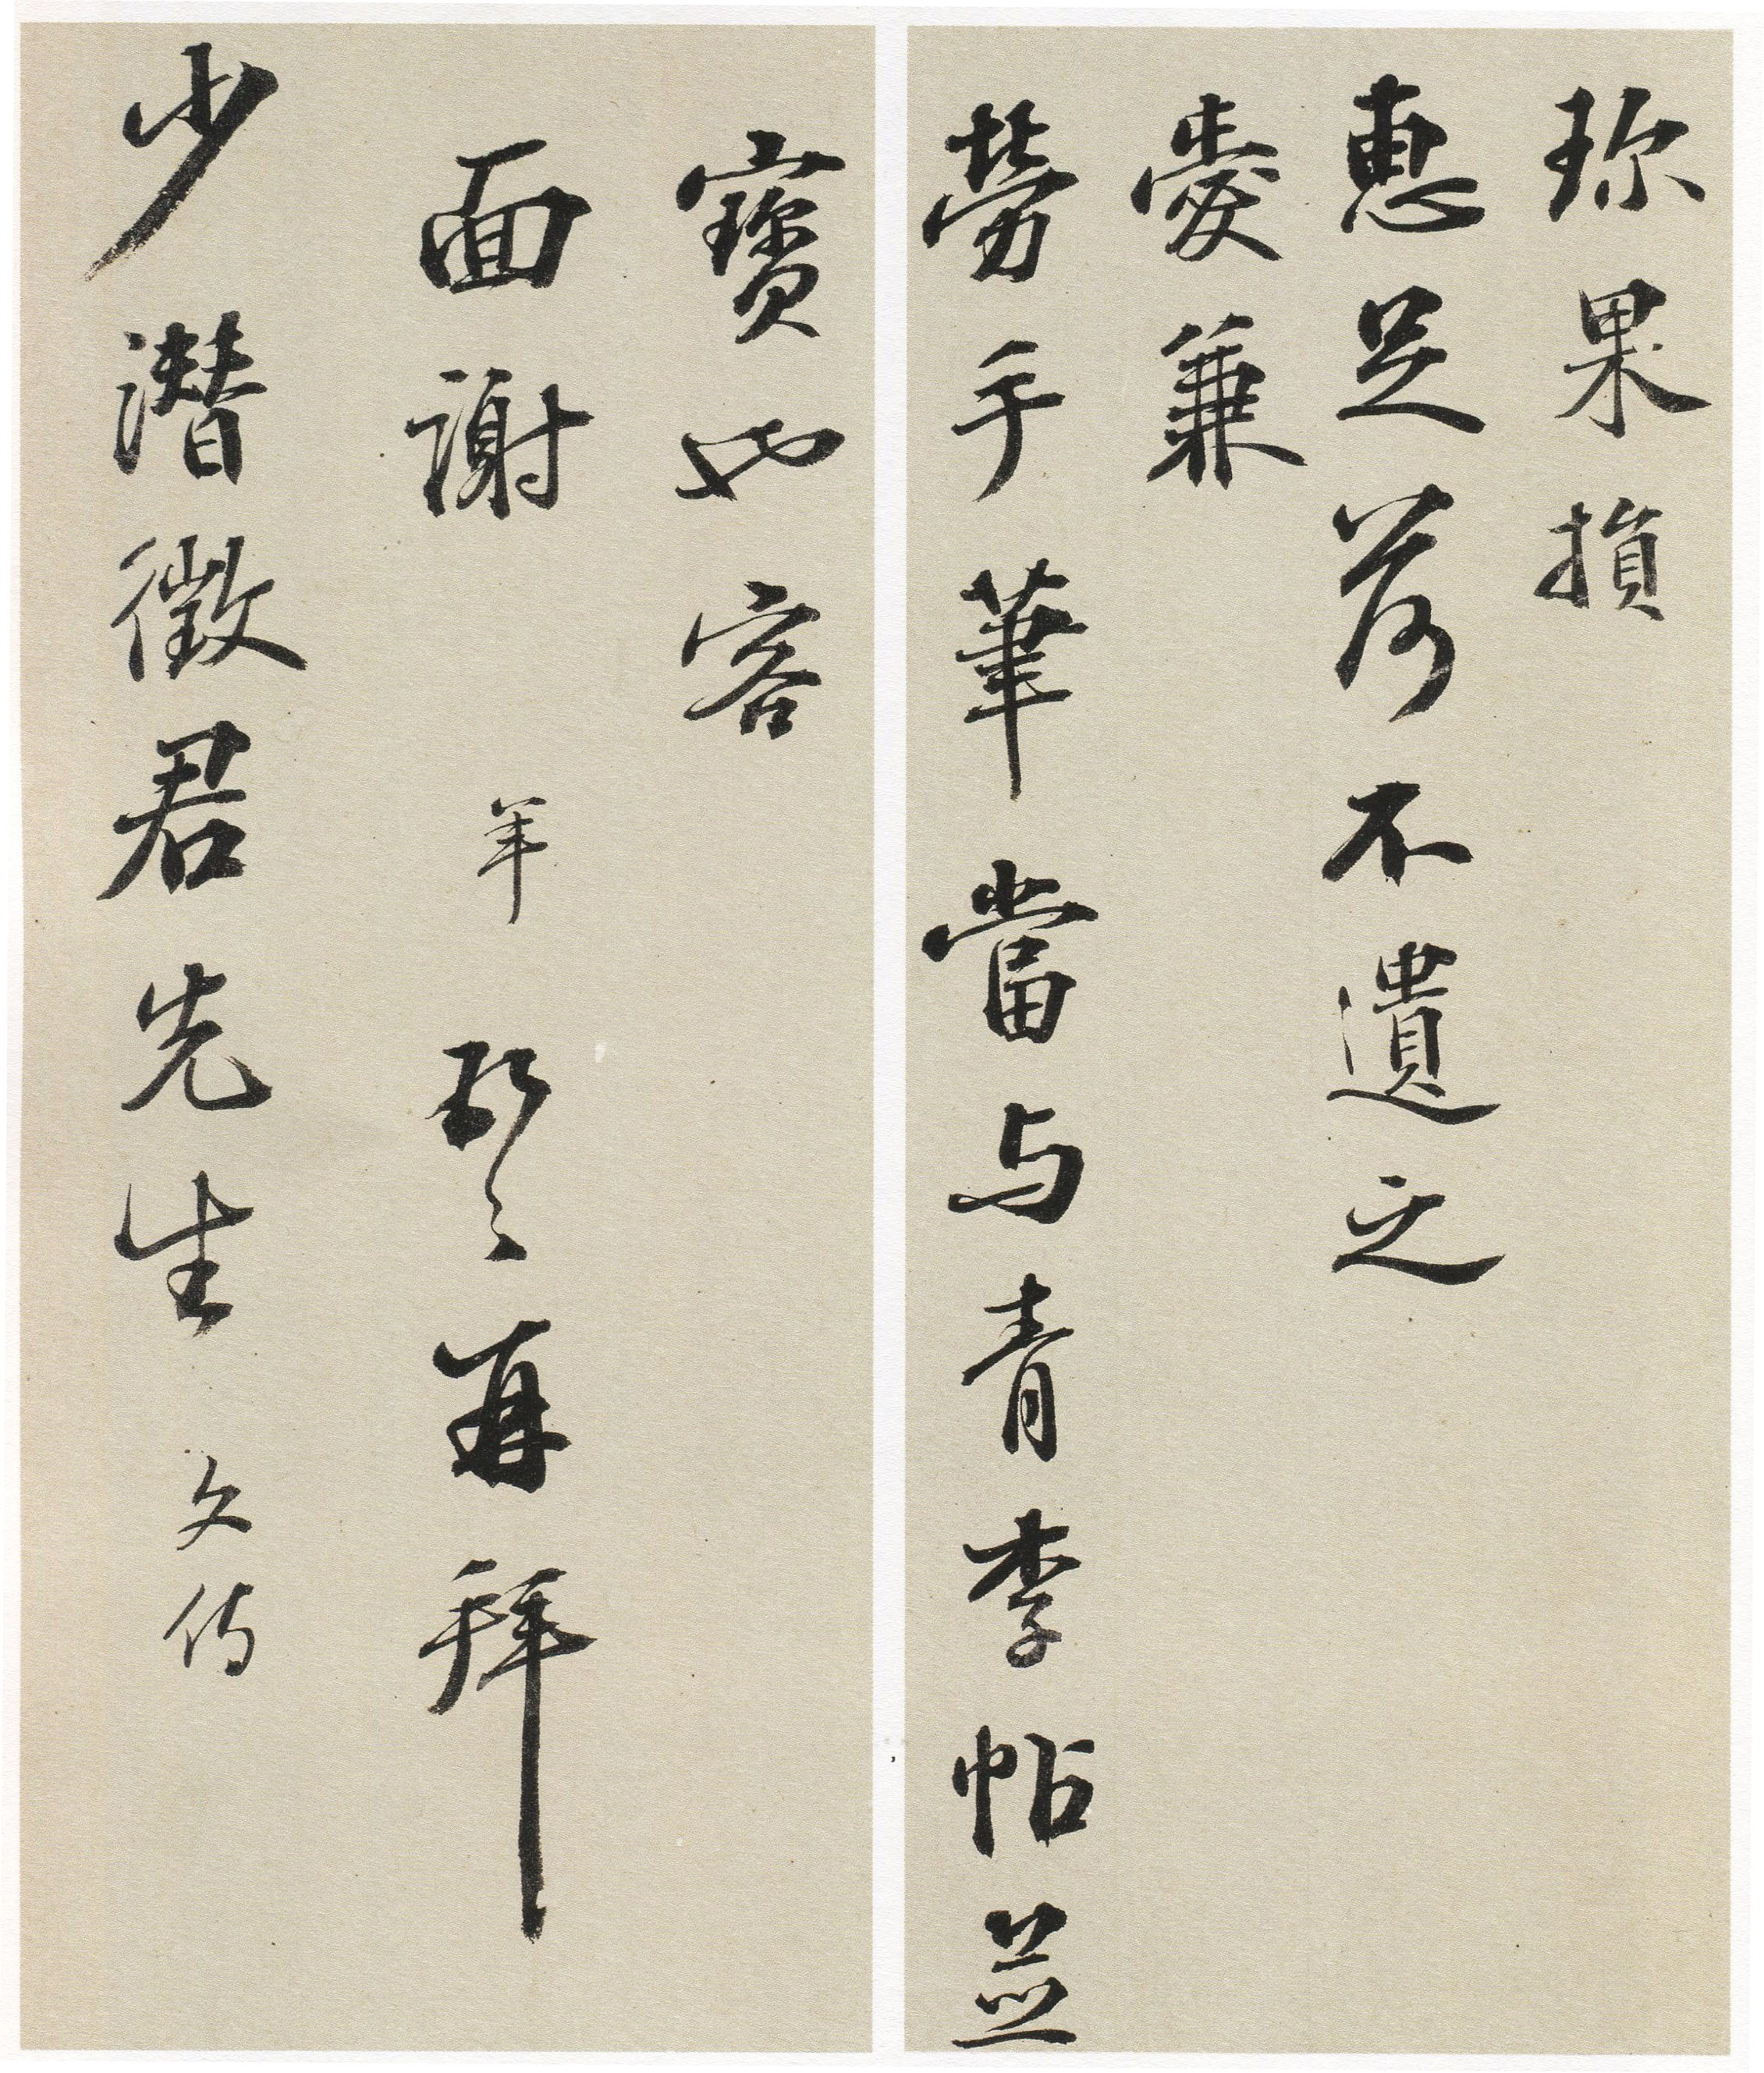 珎果損
惠足荷不遺之
愛兼
勞手筆當与青李帖並
寳也容
面謝 年 頓首再拜
少潛徵君先生 文侍